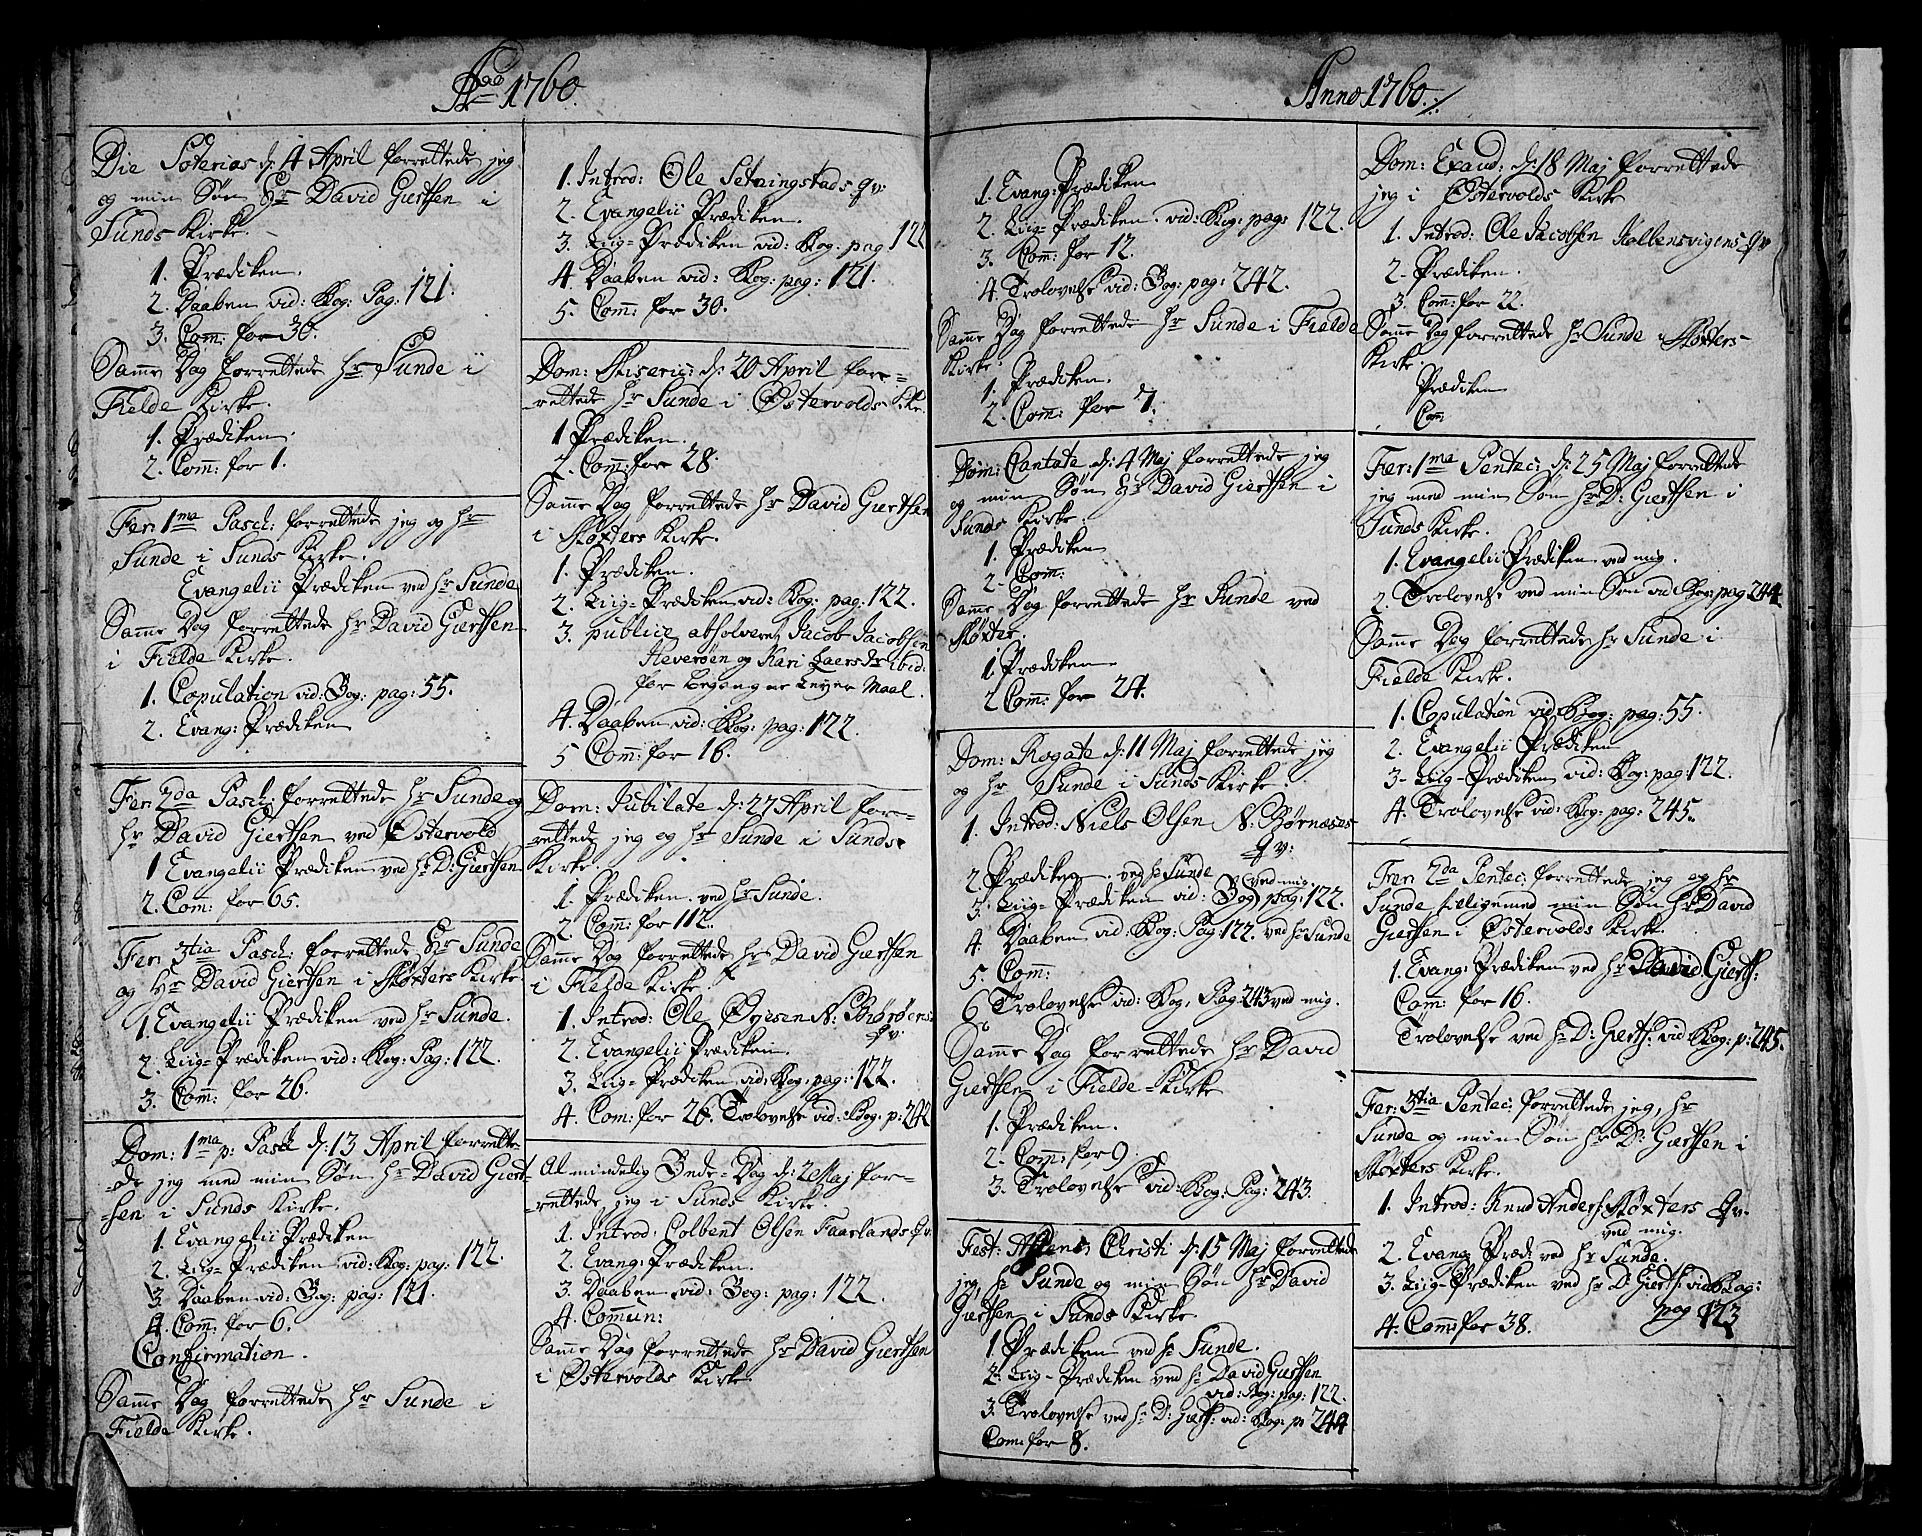 Ao 1760.
Die Soterias d: 4 April forrettede jeg
og min Søn Hr David Giertsen i
Sunds Kirke. -
1. Prædiken.
2. Daaben vid: Bog: Pag: 121.
3. Com: for 30.
Samme Dag forrettede Hr Sunde i
Fielde Kirke.
1. Prædiken.
2. Com: for 1.
Fer: 1ma Pasch: forrettede jeg og Hr
Sunde i Sunds Kirke.
Evangelii Prædiken ved Hr Sunde.
Samme Dag forrettede Hr David Giertsen
i Fielde Kirke.
1. Copulation vid: Bog: pag: 55.
2. Evang: Prædiken
Fer: 2da Pasch: forrettede Hr Sunde og
Hr David Giertsen ved Østervold
1 Evangelii Prædiken ved Hr D: Giertsen
2. Com: for 65.
Fer: 3tia Pasch: forrettede Hr Sunde
og Hr David Giertsen i Møxters Kirke
1. Evangelii Prædiken ved Hr Sunde.
2. Liig-Prædiken vid: Bog: Pag: 122
3. Com: for 26.
Dom: 1ma p: Pasch d: 13 April forrette
-de jeg med min Søn Hr David Giert-
-sen i Sunds Kirke.
1. Evangelii Prædiken
2. Liig-Prædiken vid: Bog: pag: 122
3. Daaben vid: Bog: pag: 121.
4. Com: for 6.
Confirmation.
Samme Dag forrettede Hr Sunde i
Fielde Kirke.
1. Introd: Ole Qv:
2. Evangelii Prædiken.
3. Liig-Prædiken vid: Bog: pag 122
4. Daaben vid: Bog: pag: 121.
5. Com: for 30.
Dom: Miseric: d: 20 April for-
-rettede Hr Sunde i Østervolds Kirke.
1 Prædiken.
2. Com: for 28.
Samme Dag forrettede Hr David Giertsen
i Møxters Kirke.
1. Prædiken.
2. Liig-Prædiken vid: Bog: pag: 122.
3. publice absolveret Jacob Jacobsen
og Kari Laersdr ibid:
for begangne Leyer Maal.
4. Daaben vid: Bog: pag: 122.
5 Com: for 16.
Dom: Jubilate d: 27 April for-
-rettede jeg og Hr Sunde i Sunds
Kirke.
1. Prædiken ved Hr Sunde.
2. Com: for 112.
Samme Dag forrettede Hr David Giertsen
i Fielde Kirke.
1. Introd: Ole N:
Qv:
2. Evangelii Prædiken.
3. Liig-Prædiken vid: Bog: pag: 122.
4. Com: for 26. Trolovelse vid: Bog: p: 242
Almindelig Bede-Dag d: 2 Maj for-
-rettede jeg i Sunds Kirke.
1. Introd: Colbent Olsen Faarlands Qv:
2. Evang: Prædiken.
3. Daaben vid: Bog: pag: 122.
4. Commun:
Samme Dag forrettede Hr David Giertsen
i Østervolds Kirke
Anno 1760.
1. Evang: Prædiken
2. Liig-Prædiken vid: Bog: pag: 122.
3. Com: for 12.
4. Trolovelse vid: Bog: pag: 242.
Samme Dag forrettede Hr Sunde i Fielde
Kirke
1. Prædiken.
2. Com: for 7.
Dom: Cantate d: 4 Maj forrettede jeg
og min Søn Hr David Giertsen i
Sunds Kirke.
1. Prædiken
2. Com:
Samme Dag forrettede Hr Sunde ved
Møxter.
1. Prædiken
2 Com: for 24.
Dom: Rogate d: 11 Maj forrettede jeg
og Hr Sunde i Sunds Kirke.
1. Introd: Niels Olsen N: Børnæses
Qv:
2. Prædiken ved Hr Sunde
ved mig
3. Liig-Prædiken vid: Bog pag: 122.
4 Daaben vid: Bog: Pag: 122. ved Hr Sunde
5. Com:
6 Trolovelse vid: Bog. Pag: 243 ved mig.
Samme Dag forrettede Hr David
Giertsen i Fielde-Kirke
1. Prædiken.
2. Com: for 9.
3. Trolovelse vid: Bog: Pag: 243.
Fest: Christi d: 15 Maj forrettede
jeg, Hr Sunde og min Søn Hr David
Giertsen i Sunds Kirke.
1. Prædiken ved Hr Sunde.
2. Liig-Prædiken ved Hr David Giertsen
vid: Bog: pag: 122.
3. Trolovelse ved Hr D: Gierts: vid: Bog: p: 244
Com: for 8.
Dom: Exaud: d: 18 Maj forrettede
jeg i Østervolds Kirke
1. Introd: Ole Jacobsen Kolbensvigens Qv
2. Prædiken.
3. Com: for 22.
Samme Dag forrettede Hr Sunde i Møxters-
Kirke
Prædiken
Com:
Fer: 1ma Pentec: d: 25 Maj forrettede
jeg med min Søn Hr D: Giertsen i
Sunds Kirke.
1. Evangelii Prædiken ved mig.
2. Trolovelse ved min Søn vid Bog: pag 244
Samme Dag forrettede Hr Sunde i
Fielde Kirke.
1. Copulation vid: Bog: pag: 55.
2. Evangelii Prædiken
3. Liig-Prædiken vid: Bog: pag: 122.
4. Trolovelse vid: Bog: pag: 245.
Fer: 2da Pentec: forrettede jeg og Hr
Sunde tilligemed min Søn Hr David
Giertsen i Østervolds Kirke.
1. Evang: Prædiken ved Hr David Gierts:
Com: for 16.
Trolovelse ved Hr D: Gierts: vid Bog: p: 245.
Fer: 3tia Pentec: forrettede jeg, Hr
Sunde og min Søn Hr D: Giertsen i
Møxters Kirke.
1. Introd: Knud Anders: Møxters Qv.
ved mig.
2. Evang: Præd: ved Hr Sunde.
3. Liig-Prædiken ved Hr D: Gierts: vid Bog:
pag 123
4. Com: for 38.